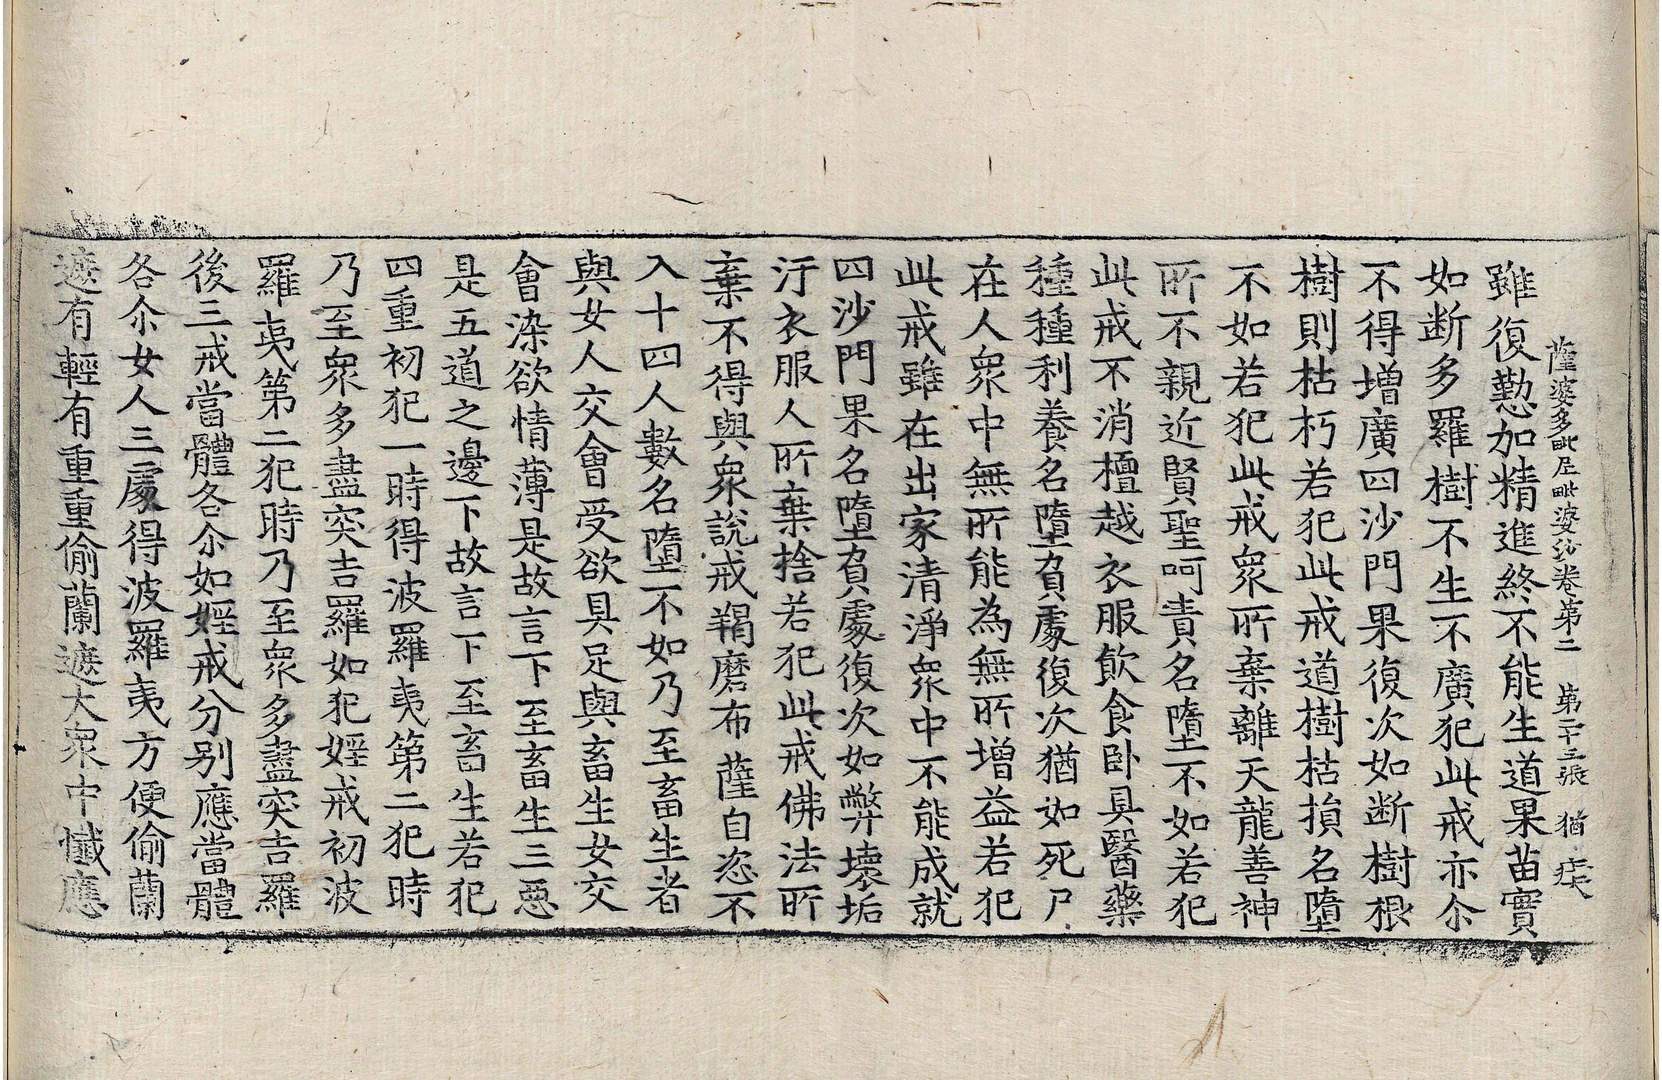 薩婆多毗尼毗婆沙卷第二 第二十三張 猶 疾
雖復懃加精進終不能生道果苗實
如断多羅樹不生不廣犯此戒亦尒
不得增廣四沙門果復次如断樹根
樹則枯朽若犯此戒道樹枯損名墮
不如若犯此戒衆所棄離天龍善神
所不親近賢聖呵責名墮不如若犯
此戒不消檀越衣服飲食卧具醫藥
種種利養名墮負處復次猶如死尸
在人衆中無所能為無所增益若犯
此戒雖在出家清淨衆中不能成就
四沙門果名墮負處復次如弊壞垢
汙衣服人所棄捨若犯此戒佛法所
棄不得與衆說戒羯磨布薩自恣不
入十四人數名墮不如乃至畜生者
與女人交會受欲具足與畜生女交
會染欲情薄是故言下至畜生三惡
是五道之邊下故言下至畜生若犯
四重初犯一時得波羅夷第二犯時
乃至衆多盡突吉羅如犯婬戒初波
羅夷第二犯時乃至衆多盡突吉羅
後三戒當體各尒如婬戒分别應當體
各尒女人三處得波羅夷方便偷蘭
遮有輕有重重偷蘭遮大衆中懺應